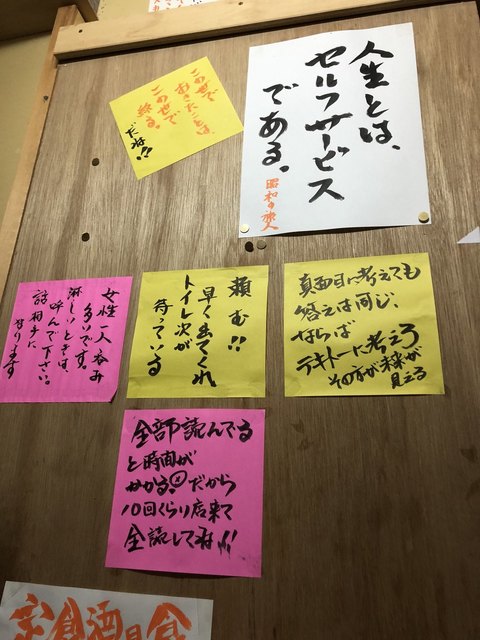 人生とは、
セルフサービス
である。
昭和の
この世で
おきたことは、
この世で
終る。
だね!!
真面目に考えても
答えは同じ、
ならば
テキトーに考えろ
その方が未来が
見える
頼む!!
早く出てくれ
トイレ次が
待っている
女性一人呑み
多いです。
淋しいときは、
呼んで下さい。
話相手に
なります
全部読んでる
と時間が
かかる。だから
10回くらい店来て
全読してネ!!